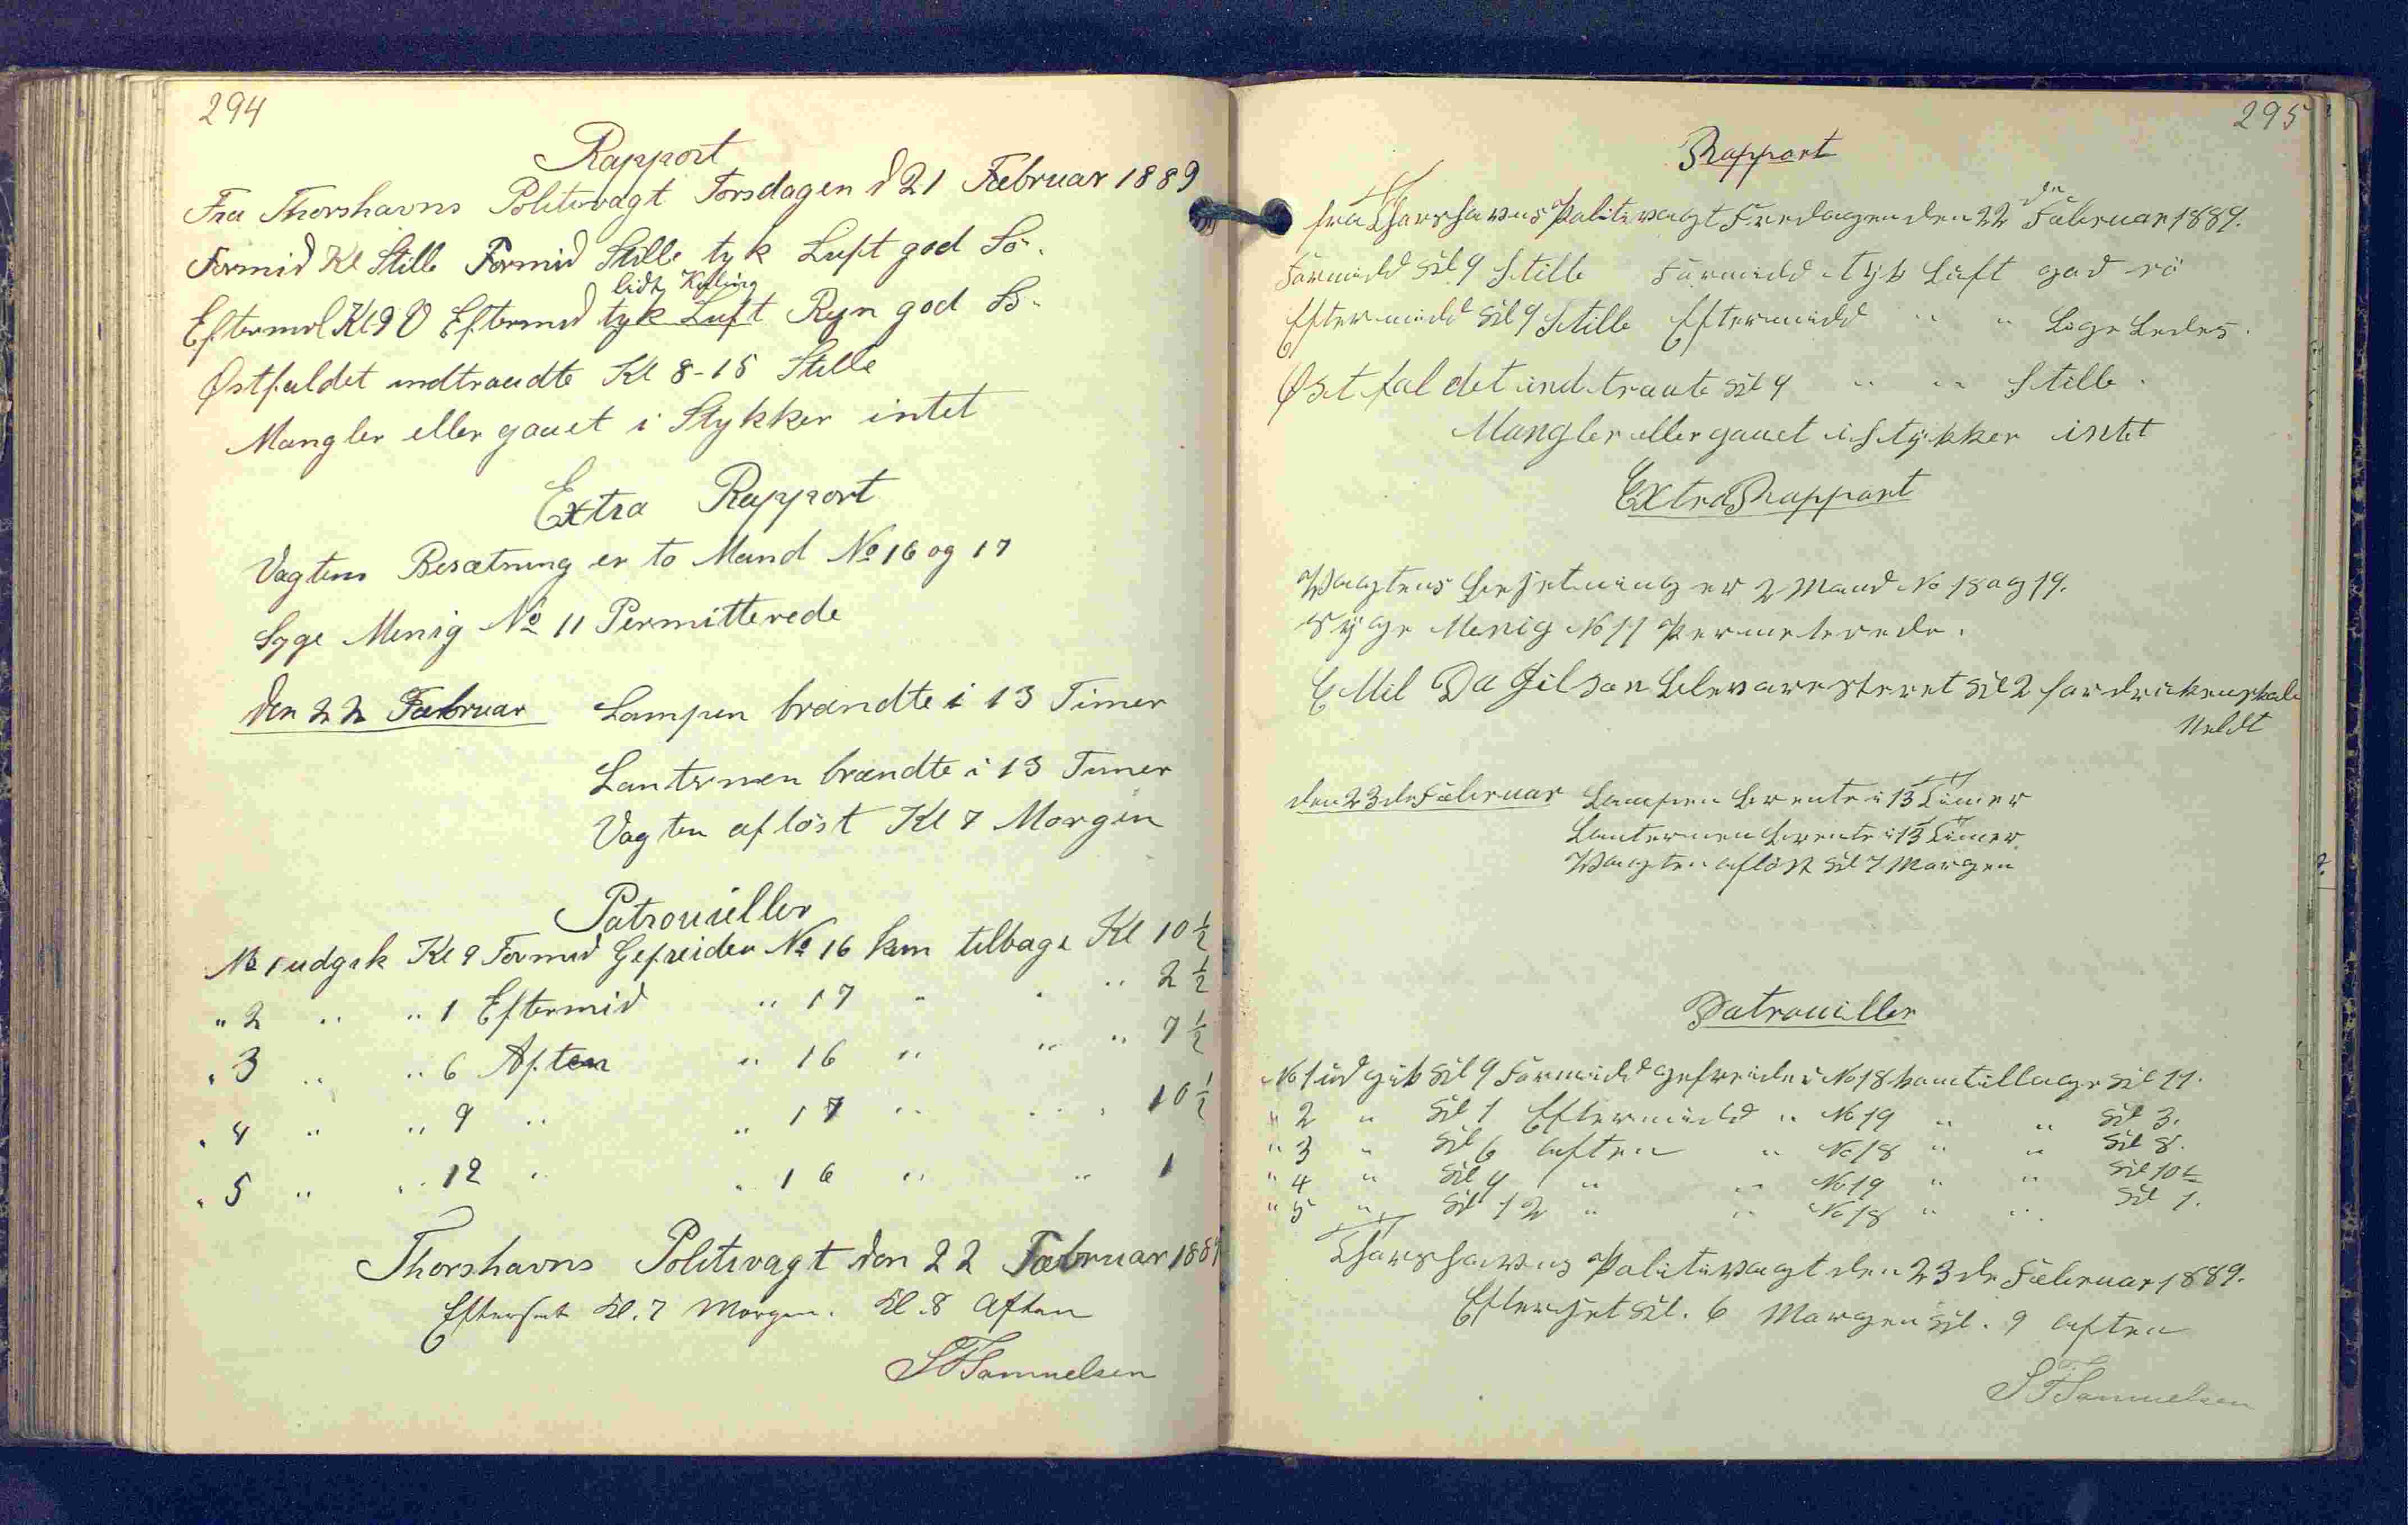 294
Rapport
Fra Thorshavns Politivagt Torsdagen d 21 Februar 1889
Formid Kl Stille Formid Stille tyk Luft god Sö.
lidt Kuling
Eftermd Kl 9 O Eftermd tyk Luft Rejn god Sö.
Østfaldet indtraadte Kl 8-15 Stille
Mangler eller gaaet i Stykker intet
Extra Rapport
Vagtens Besætning er to Mand No 16 og 17
Syge Menig No 11 Permitterede
Den 22 Februar Lampen brændte i 13 Timer
Lanternen brændte i 13 Timer
Vagten aflöst Kl 7 Morgen
Patrouiller
No 1 udgik Kl 9 Formid Gefreider No 16 kom tilbage Kl 10 ½
" 2 " " 1 Eftermid " 17 " " " 2 ½
" 3 " " 6 Aften " 16 " " " 7 ½
" 4 " " 9 " " 17 " " " 10 ½
" 5 " " 12 " " 16 " " 1
Thorshavns Politivagt den 22 Februar 1889
Efterset Kl. 7 Morgen. Kl. 8 Aften
SFSamuelsen
295
Rapport
fra Thorshavns Politivagt Fredagen den 22 de Februar 1889.
Formidd Kl 9 Stille Formidd tyk Luft god sö
Eftermidd Kl 9 Stille Eftermidd " " Lige Ledes.
Østfaldet indtraate Kl 9 " " Stille.
Mangler eller gaaet i Stykker intet
Extra Rapport
Wagtens besetning er 2 Mand No 18 og 19.
Syge Menig No 11 Permeterede.
Emil Da Jilson blev aresteret Kl 2 for drickenskab
Meldt
den 23 de Februar Lampen brente i 13 Timer
Lanternen brente i 13 Timer
Wagten aflöst Kl 7 Morgen
Patrouiller
No 1 udgik Kl 9 Formidd gefreider No 18 kom tilbage Kl 11.
" 2 " Kl 1 Eftermidd " No 19 " " Kl 3.
" 3 " Kl 6 aften " No 18 " " Kl 8.
" 4 " Kl 9 " " No 19 " " Kl 10 ½
" 5 " Kl 12 " " No 18 " " Kl 1.
Thorshavns Politivagt den 23 de Februar 1889.
Efterset Kl. 6 Morgen Kl. 9 aften
SFSamuelsen